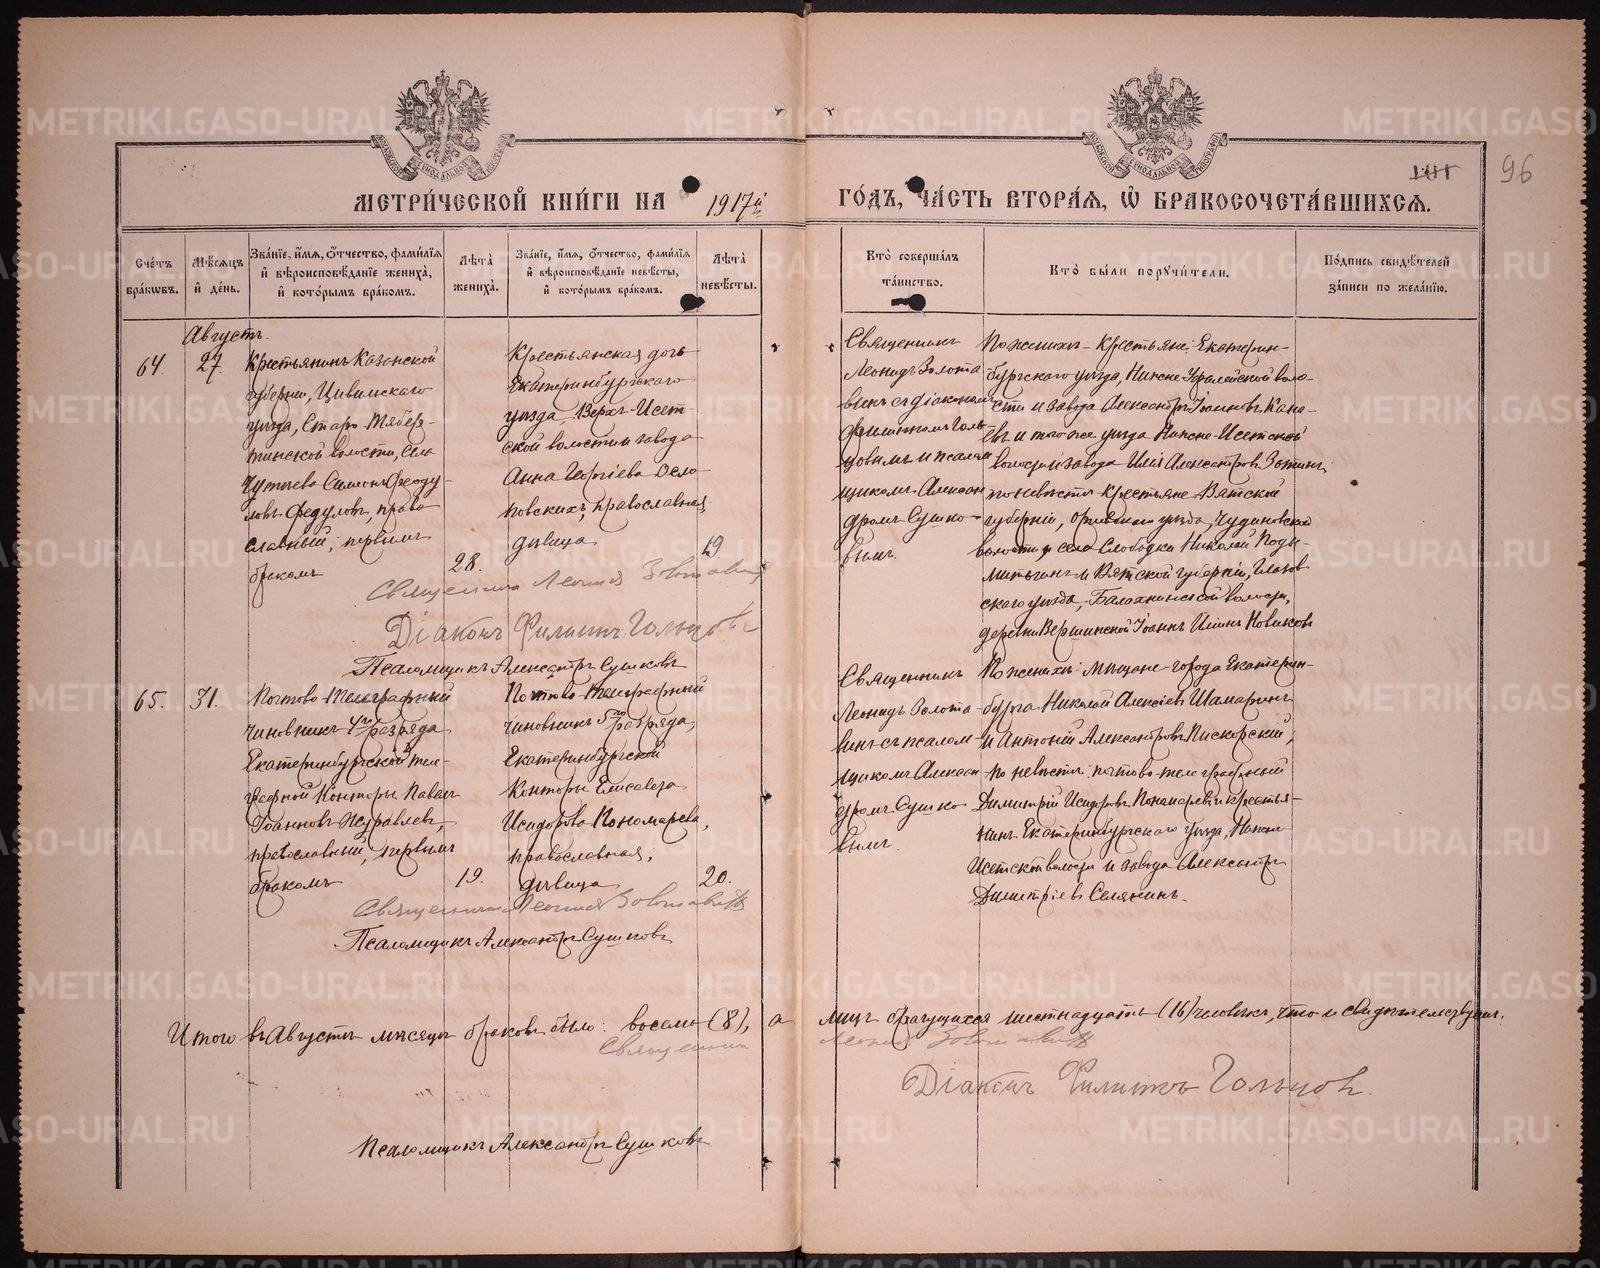 МЕТРИ́ЧЕСКОЙ КНИ́ГИ НА 1917й ГО́ДЪ, ЧА́СТЬ ВТОРА́Я, Ѡ БРАКОСОЧЕТА́ВШИХСЯ.
96
Сче́тъ бра́кѡвъ.
Мѣ́сяцъ и҆ де́нь.
Зва́нїе, и҆́мя, ѻ҆́тчество, фами́лїя и҆ вѣроисповѣ́данїе жениха̀, и҆ кото́рымъ бра́комъ.
Лѣ́та жениха̀.
Зва́нїе, и҆́мя, ѻ҆́тчество, фами́лїя и҆ вѣроисповѣ́данїе невѣ́сты, и҆ кото́рымъ бра́комъ.
Лѣ́та невѣ́сты.
Кто̀ соверша́лъ та́инство.
Кто̀ бы́ли поручи́тели.
По́дпись свидѣ́телей за́писи по жела́нїю.
Августъ.
64
27
Крестьянинъ Казанской
губерніи, Цивильскаго
уѣзда, Старо-
волости, села
Симеонъ Феоду-
ловъ Федуловъ, право-
славный, первымъ
бракомъ
28.
Крестьянская дочь
Екатеринбургскаго
уѣзда, Верхъ-Исет-
ской волости и завода
Анна Георгіева
православная,
дѣвица
19
Священникъ
Леонидъ Золота-
винъ съ діакономъ
Филиппомъ Голь-
цовымъ и псалом-
щикомъ Алексан-
дромъ Сушко-
вымъ.
По женихѣ - крестьяне: Екатерин-
бургскаго уѣзда, Нижне-Уфалейской воло-
сти и завода Александръ Іоанновъ Кана-
евъ и того же уѣзда Нижне-Исетской
волости и завода Илія Александровъ Зотинъ,
по невѣстѣ крестьяне Вятской
губерніи, Орловскаго уѣзда, Чудиновской
волости, села Слободки Николай
и Вятской губерніи, Глазов-
скаго уѣзда, Балахнинской волости,
деревни Вершининской Іоаннъ Иліинъ Новиковъ
Священникъ Леонидъ Золотавинъ
Діаконъ Филиппъ Гольцовъ
Псаломщикъ Александръ Сушковъ
65.
31.
Почтово-Телеграфный
чиновникъ 4го разряда
Екатеринбургской теле-
графной Конторы Павелъ
Іоанновъ Журавлевъ,
православный, первымъ
бракомъ
19.
Почтово-телеграфный
чиновникъ 5го разряда,
Екатеринбургской
Конторы Елисавета
Исидорова Пономарева,
православная,
дѣвица
20.
Священникъ
Леонидъ Золота-
винъ съ псалом-
щикомъ Алексан-
дромъ Сушко-
вымъ.
По женихѣ: мѣщане города Екатерин-
бурга Николай Алексіевъ Шамаринъ
и Антоній Александровъ Пискорскій,
по невѣстѣ: почтово-телеграфный
Димитрій Исидоровъ Пономаревъ и крестья-
нинъ Екатеринбургскаго уѣзда, Нижне-
Исетской волости и завода Александръ
Димитріевъ Селянинъ.
Священникъ Леонидъ Золотавинъ
Псаломщикъ Александръ Сушковъ
Итого въ Августѣ мѣсяцѣ браковъ было: восемь (8), а лицъ брачущихся шестнадцать (16) человѣкъ, что и свидѣтельствуемъ.
Священникъ Леонидъ Золотавинъ
Діаконъ Филиппъ Гольцовъ.
Псаломщикъ Александръ Сушковъ
METRIKI.GASO-URAL.RU